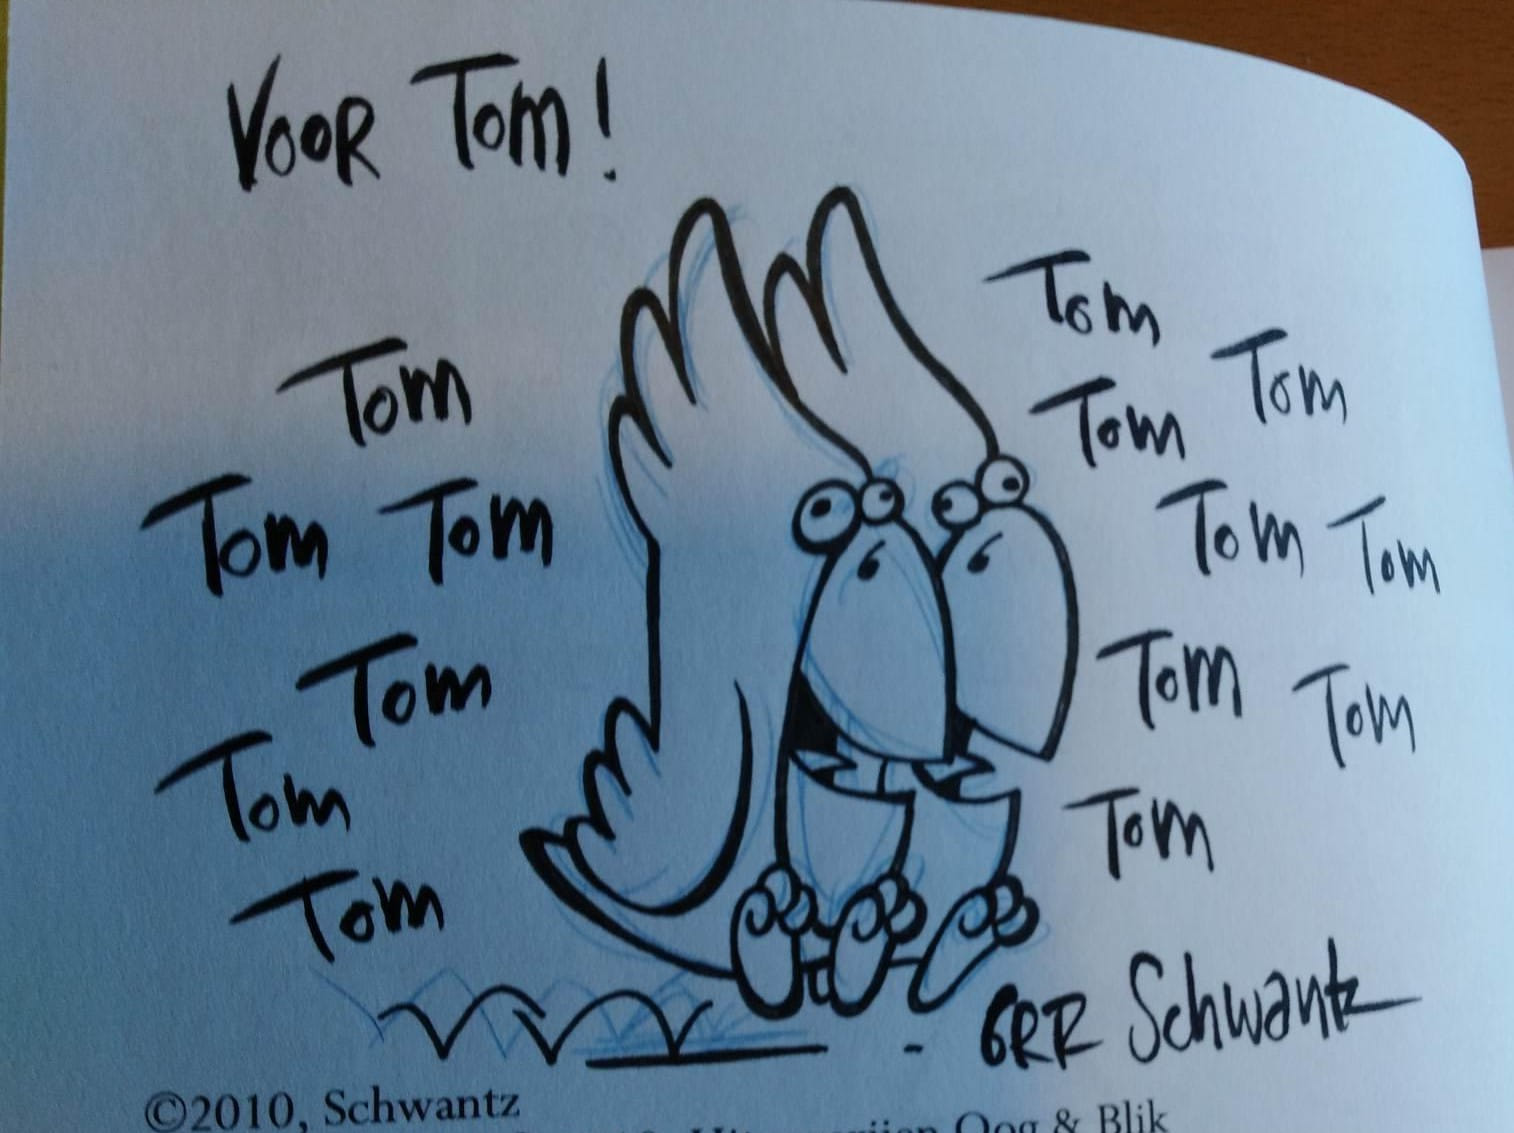 VOOR TOM!
Tom
Tom
Tom
Tom
Tom Tom
Tom Tom
Tom
Tom
Tom
Tom
Tom
Tom
Tom
GRR Schwantz
©2010, Schwantz
Oog & Blik